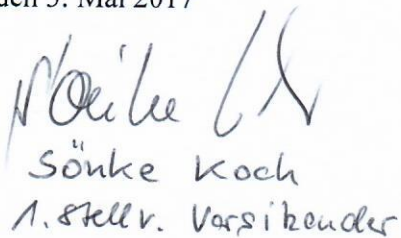 den 5. Mai 2017
Sönke Koch
1. stellv. Vorsitzender